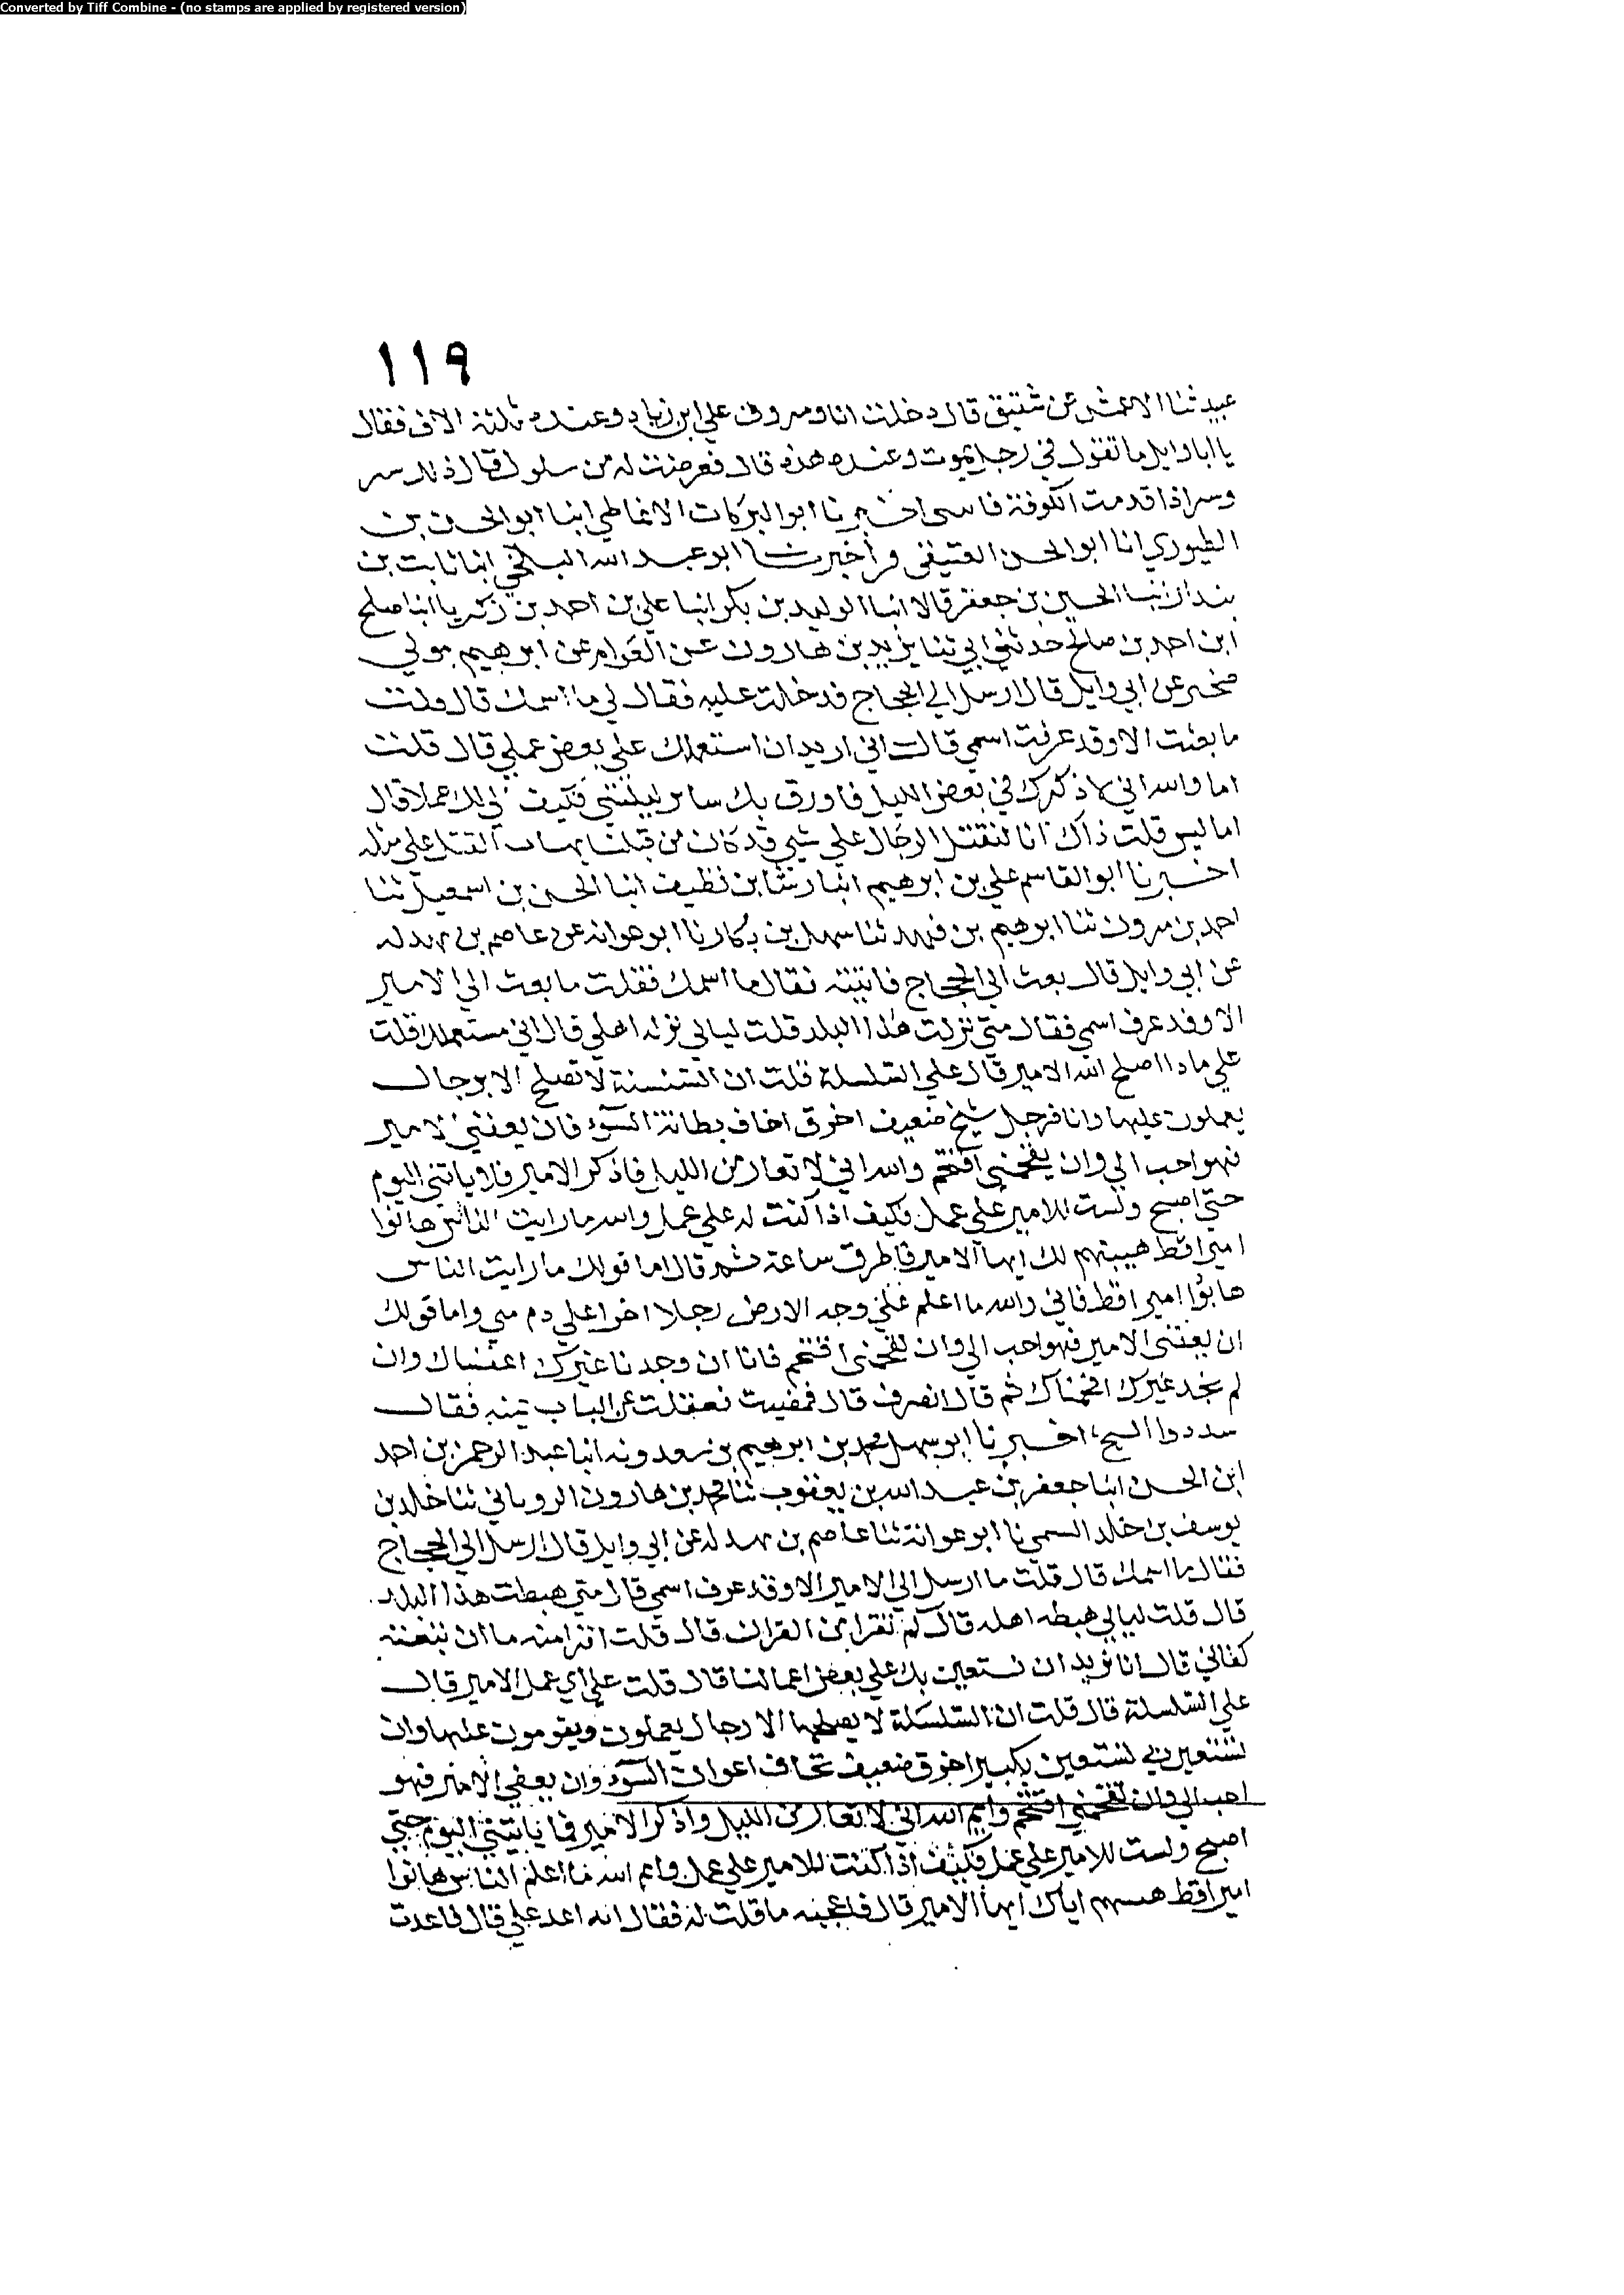 Converted by Tiff Combine - (no stamps are applied by registered version)
١١٩
عبيد ثنا الاعمش عن شقيق قال دخلت انا ومسروق علي ابن زياد وعنده ثلثة الاف فقال
يا ابا وايل ما تقول في رجل يموت وعنده هذه قال فعرضت له من سلول قال ذلك سر
وسر اذا قدمت الكوفة اخبرنا ابو البركات الانماطي ابنا ابو الحسن بن
الطيوري انا ابو الحسن العتيقي واخبرنا ابو عبد الله البلخي ابنا ثابت بن
بندار نبا الحسين بن جعفر قالا انبا الوليد بن بكر انبا علي بن احمد بن زكريا انبا صلح
ابن احمد بن صالح حدثني ابي ثنا يزيد بن هارون عن العوام عن ابرهيم مولي
صخير عن ابي وايل قال ارسل الي الحجاج فدخلت عليه فقال لي ما اسمك قال قلت
ما بعثت الا وقد عرفت اسمي قال اني اريد ان استعملك علي بعض عملي قال قلت
اما والله اني لاذكرك في بعض الليل فاورق بك ساير ليلتي فكيف الي لك عملا قال
اما ليس قلت ذاك انا لنقتل الرجال علي شي قد كان من قبلنا يهاب القتل علي مثله
اخبرنا ابو القاسم علي بن ابرهيم انبا رشا بن نظيف انبا الحسن بن اسمعيل ثنا
احمد بن مرون ثنا ابرهيم بن فهد ثنا سهل بن بكار نا ابو عوانه عن عاصم بن بهدله
عن ابي وايل قال بعث الي الحجاج فاتيته فقال ما اسمك فقلت ما بعث الي الامير
الا وقد عرف اسمي فقال متي نزلت هذا البلد قلت ليالي نزله اهلي قال اني مستعملك قلت
علي ماذا اصلح الله الامير قال علي السلسلة قلت ان السلسلة لا تصلح الا برجال
يعملون عليها وانا فرجل شيخ ضعيف اخرق اخاف بطانة السوء فان يعفني الامير
فهو احب الي وان يقحمني اقتحم والله اني لا تعار من الليل فاذكر الامير فلا ياتني النوم
حتي اصبح ولست للامير علي عمل فكيف اذا كنت له علي عمل والله ما رايت الناس هابوا
اميرا قط هيبتهم لك ايها الامير فاطرق ساعة ثم قال اما قولك ما رايت الناس
هابوا اميرا قط فاني والله ما اعلم علي وجه الارض رجلا اجرا علي دم مني واما قولك
ان يعفني الامير فهو احب الي وان يقحمني اقتحم فانا ان وجدنا غيرك اعفيناك وان
لم نجد غيرك اقحمناك ثم قال انصرف قال فمضيت فغفلت عن الباب فقال
سددوا الشيخ اخبرنا ابو سهل محمد بن ابرهيم بن سعدويه انبا عبد الرحمن بن احمد
ابن الحسن انبا جعفر بن عبد الله بن يعقوب ثنا محمد بن هارون الروياني ثنا خالد بن
يوسف بن خالد السمتي نا ابو عوانة ثنا عاصم بن بهدله عن ابي وايل قال ارسل الي الحجاج
فقال ما اسمك قال قلت ما ارسل الي الامير الا وقد عرف اسمي قال متي هبطت هذا البلد
قال قلت ليالي هبطه اهله قال كم تقرا من القران قال قلت اقرا منه ما ان تبعته
كفاني قال انا نريد ان نستعين بك علي بعض اعمالنا قال قلت علي اي عمل الامير قال
علي السلسلة قال قلت ان السلسلة لا يصلحها الا رجال يعملون ويقومون عليها وان
تستعين بي تستعين بكبير اخرق ضعيف يخاف اعوان السوء وان يعفي الامير فهو
احب الي وان تقحمني اقتحم وايم الله اني لا تعار من الليل واذكر الامير فما ياتيني النوم حتي
اصبح ولست للامير علي عمل فكيف اذا كنت للامير علي عمل وايم الله ما اعلم الناس هابوا
اميرا قط اياك ايها الامير قال فاعجبه ما قلت له فقال انه اعد علي قال فاعدت